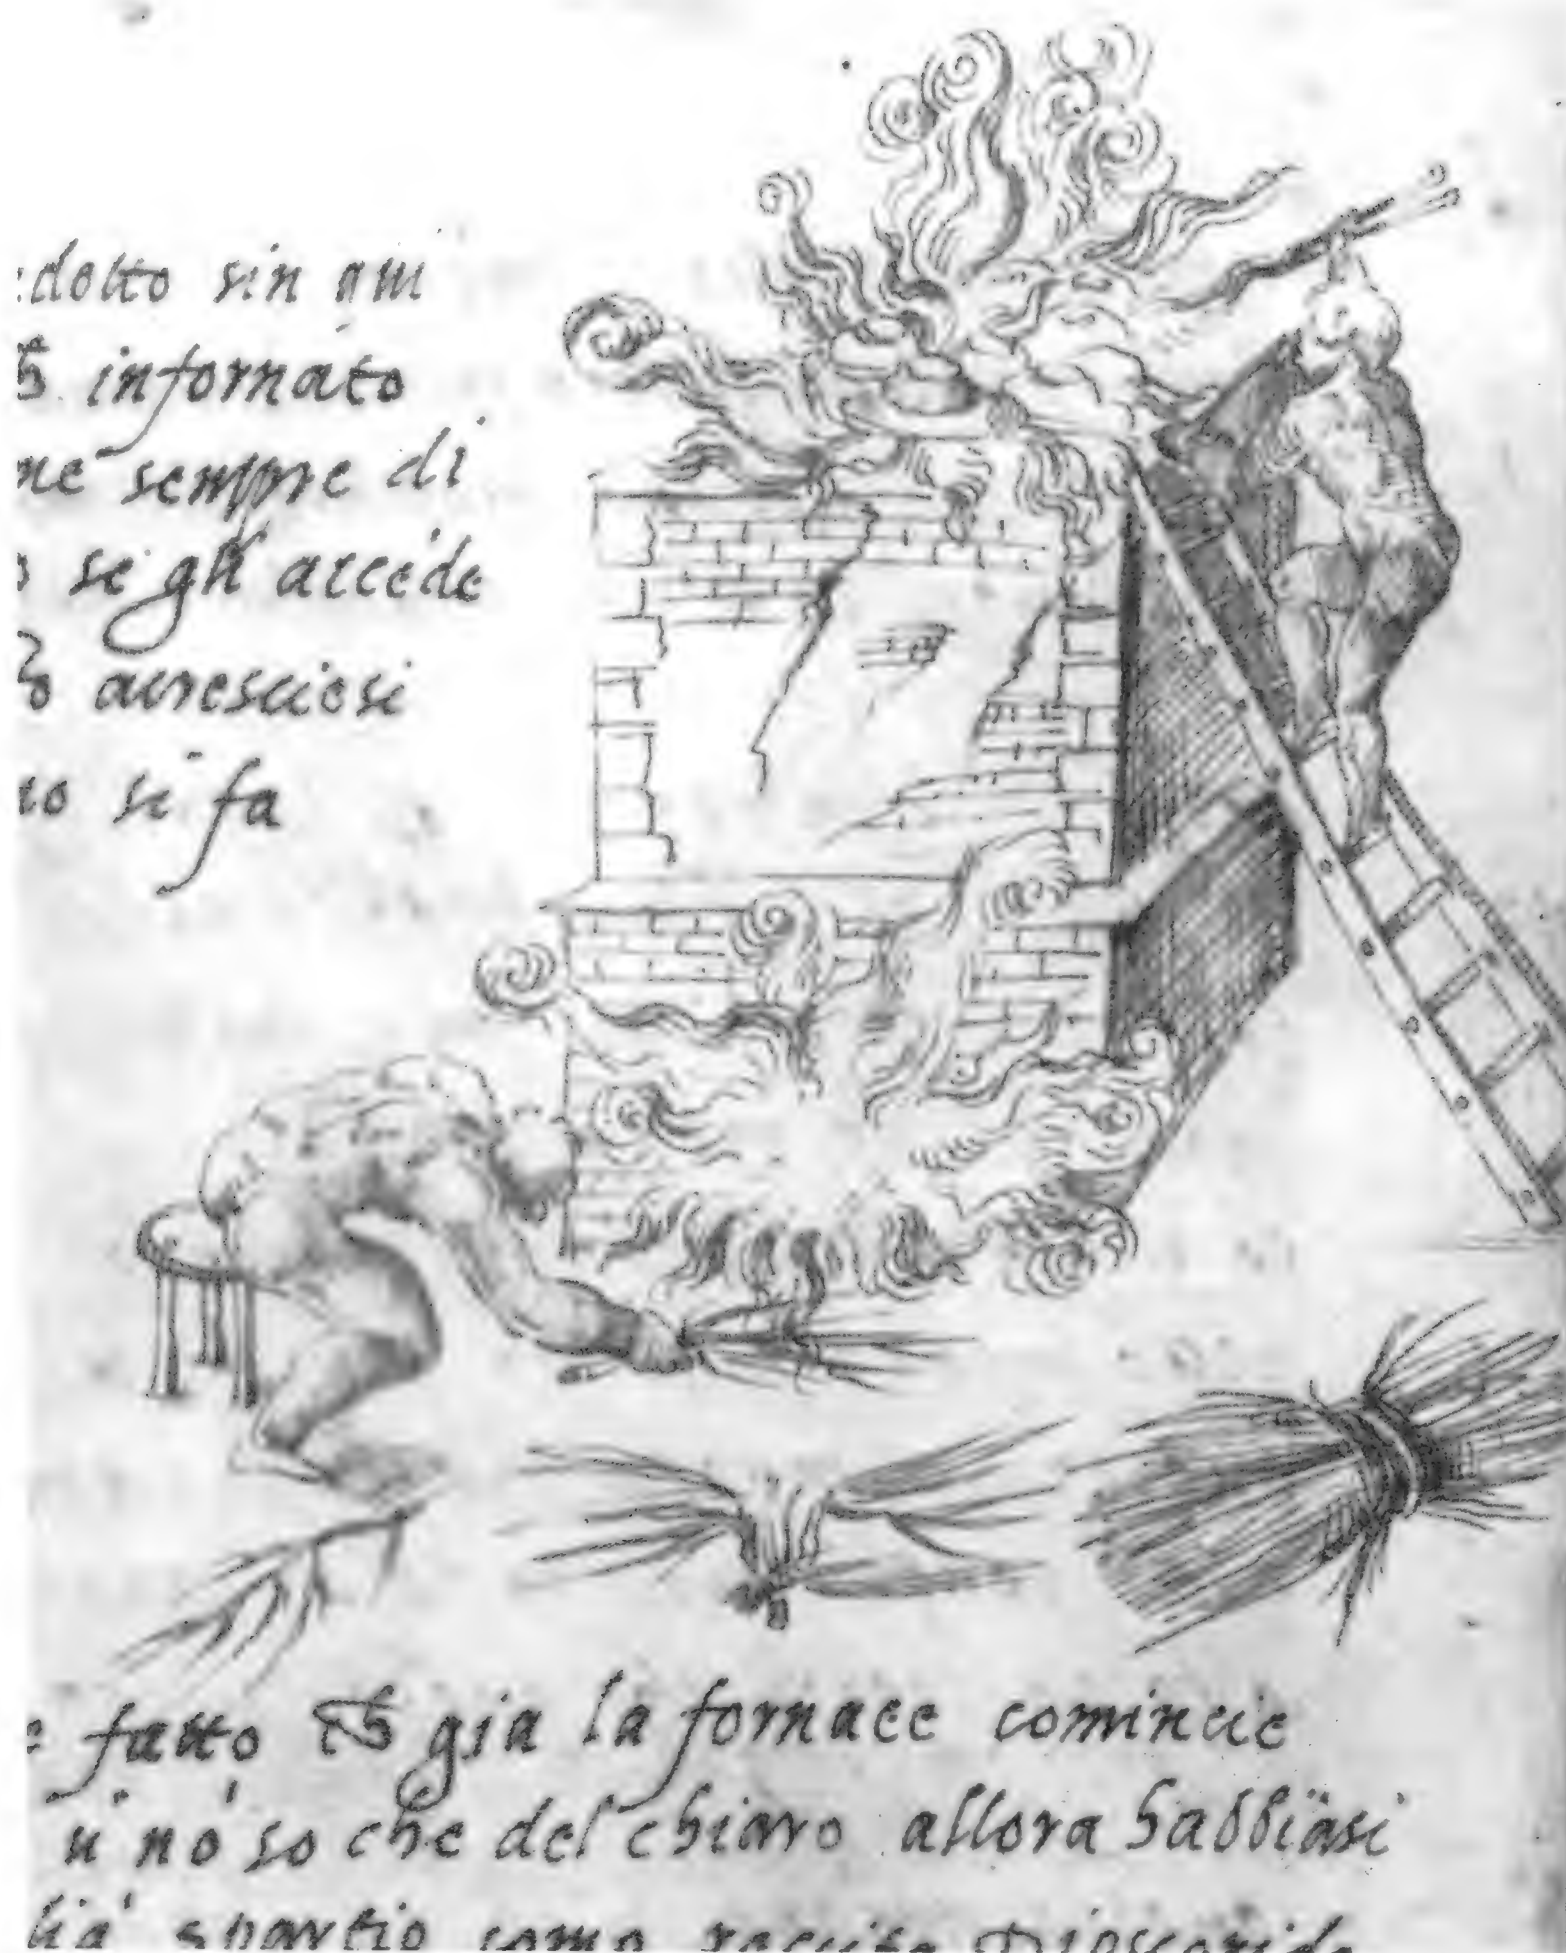 dotto sin qui
& infornato
me sempre di
se gli accēde
accresciesi
to si fa
fatto & gia la fornace comincie
u nō so che del chiaro allora habbiasi
spartio como Dioscoride